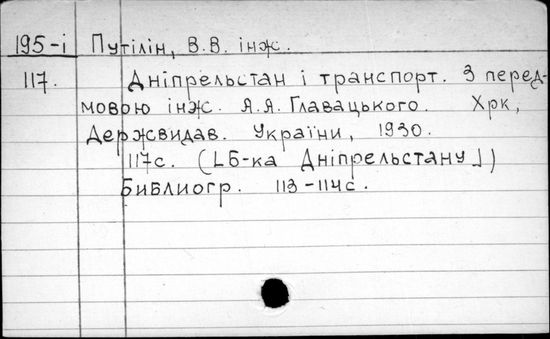 195-і Путілін, В.В. інж.
117. Дніпрельстан і транспорт. З перед-
мовою інж. А.А. Главацького. Хрк,
Держвидав. України, 1930.
117с. (LБ-ка Дніпрельстану⅃)
Библиогр. 113-114с.